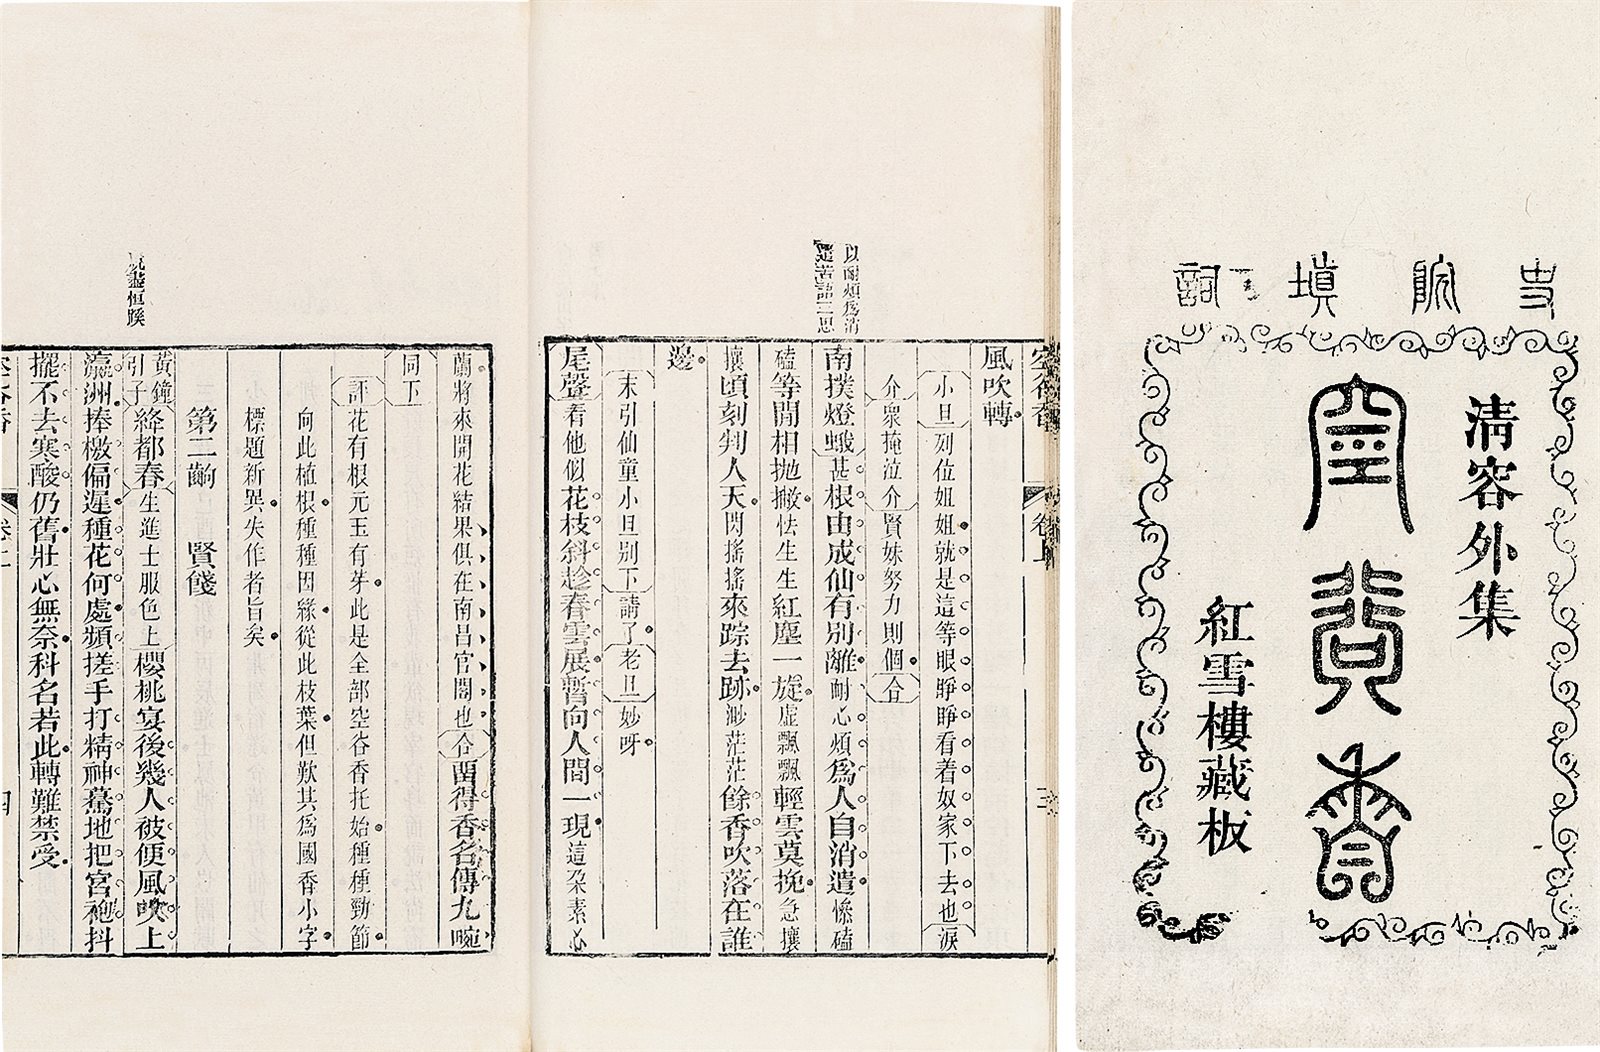 史院填詞
清容外集
空谷香
紅雪樓藏板
空谷香
卷上
三
風吹轉
小旦列位姐姐就是這等眼睜睜看着奴家下去也淚
介衆掩泣介賢妹努力則個合
南撲燈蛾甚根由成仙有別離耐心煩爲人自消遣慘磕
磕等閒相拋撇怯生生紅塵一旋虛飄飄輕雲莫挽急攘
攘頃刻判人天閃搖搖來踪去跡渺茫茫餘香吹落在誰
邊
末引仙童小旦別下請了老旦妙呀
尾聲看他似花枝斜趁春雲展暫向人間一現這朶素心
以耐煩爲消
遣苦語三思
蘭將來開花結果俱在南昌官閣也合畱得香名傳九畹
同下
評花有根元玉有芽此是全部空谷香托始種種勁節
向此植根種種因緣從此枝葉但歎其爲國香小字
標題新異失作者旨矣
第二齣 賢餞
黃鐘引子絳都春生進士服色上櫻桃宴後幾人被便風吹上
瀛洲捧檄偏遲種花何處頻搓手打精神驀地把宮袍抖
擺不去寒酸仍舊壯心無奈科名若此轉難禁受
空谷香
卷上
四